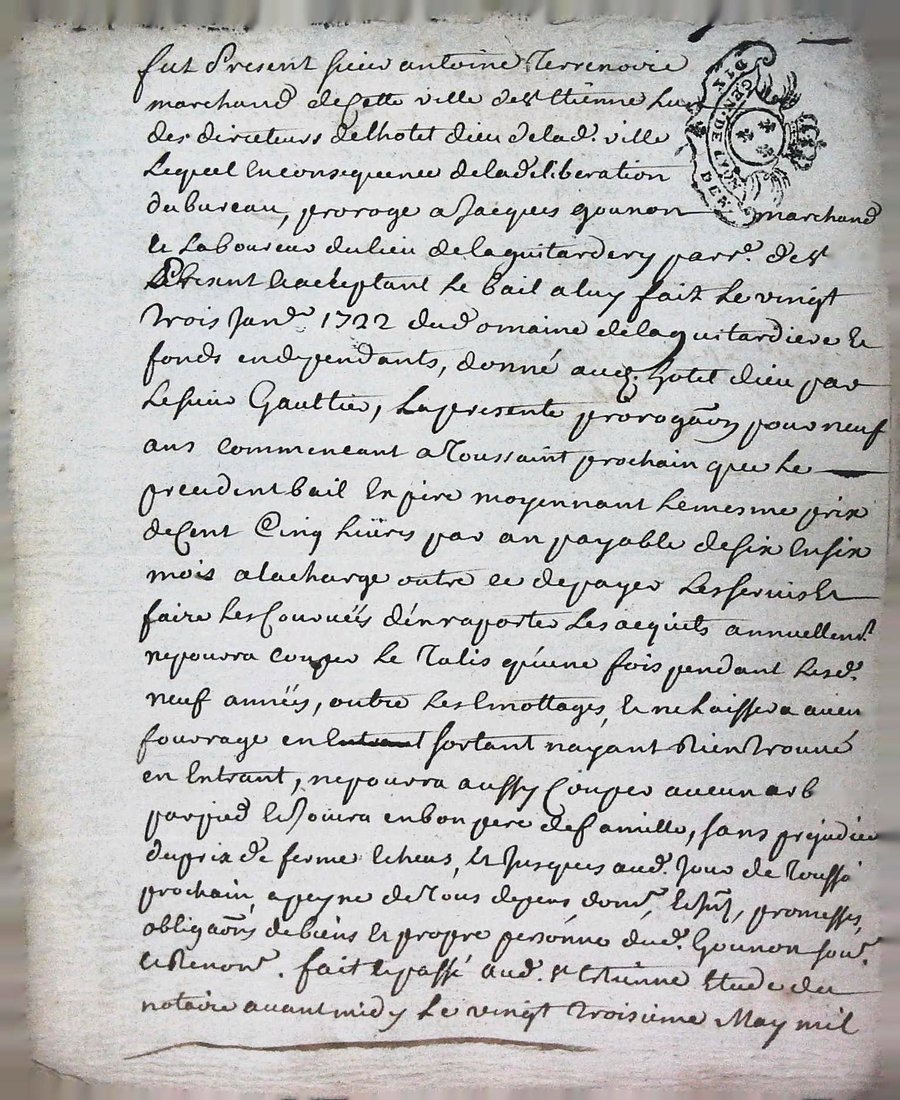 fut Present sieur antoine Terrenoire
marchand de Cette ville de st Etienne Lun
des directeurs de lhotel dieu de lad. ville
Lequel En consequence de la deliberation
du bureau, proroge a Jacques gounon marchand
et Laboureur du lieu de la guitardery parr.e de st
Present et acceptant le bail a luy fait le vingt
trois Janr 1722 du domaine de la guitardiere et
fonds en dependants, donné aud. hotel dieu par
Le sieur Gaultier, La presente prorogãon pour neuf
ans commencant a Toussaint prochain que le
precedent bail Expire moyennant le mesme prix
de Cent Cinq livres par an payable de six En six
mois a la charge outre ce de payer Les servis Et
faire Les Courvéés d'en raporter Les acquits annuellemt
ne pourra couper le Talis qu'une fois pendant Lesd.
neuf annéés, outre Les Emottages, et ne Laissera aucun
fourrage en sortant nayant Rien trouvé
en Entrant, ne pourra aussy Couper aucun arb
par pied et Jouira en bon pere de famille, sans prejudice
du prix de ferme Echeus, et Jusques aud. Jour de Touss
prochain, a peyne de Tous depens dom.
obligãons de biens et propre persónne dud. Gounon
et Renonr. fait et passé aud. st Etienne Etude du
notaire avant midy Le vingt troisieme May mil
DIX
GEN DE LYON
DEN